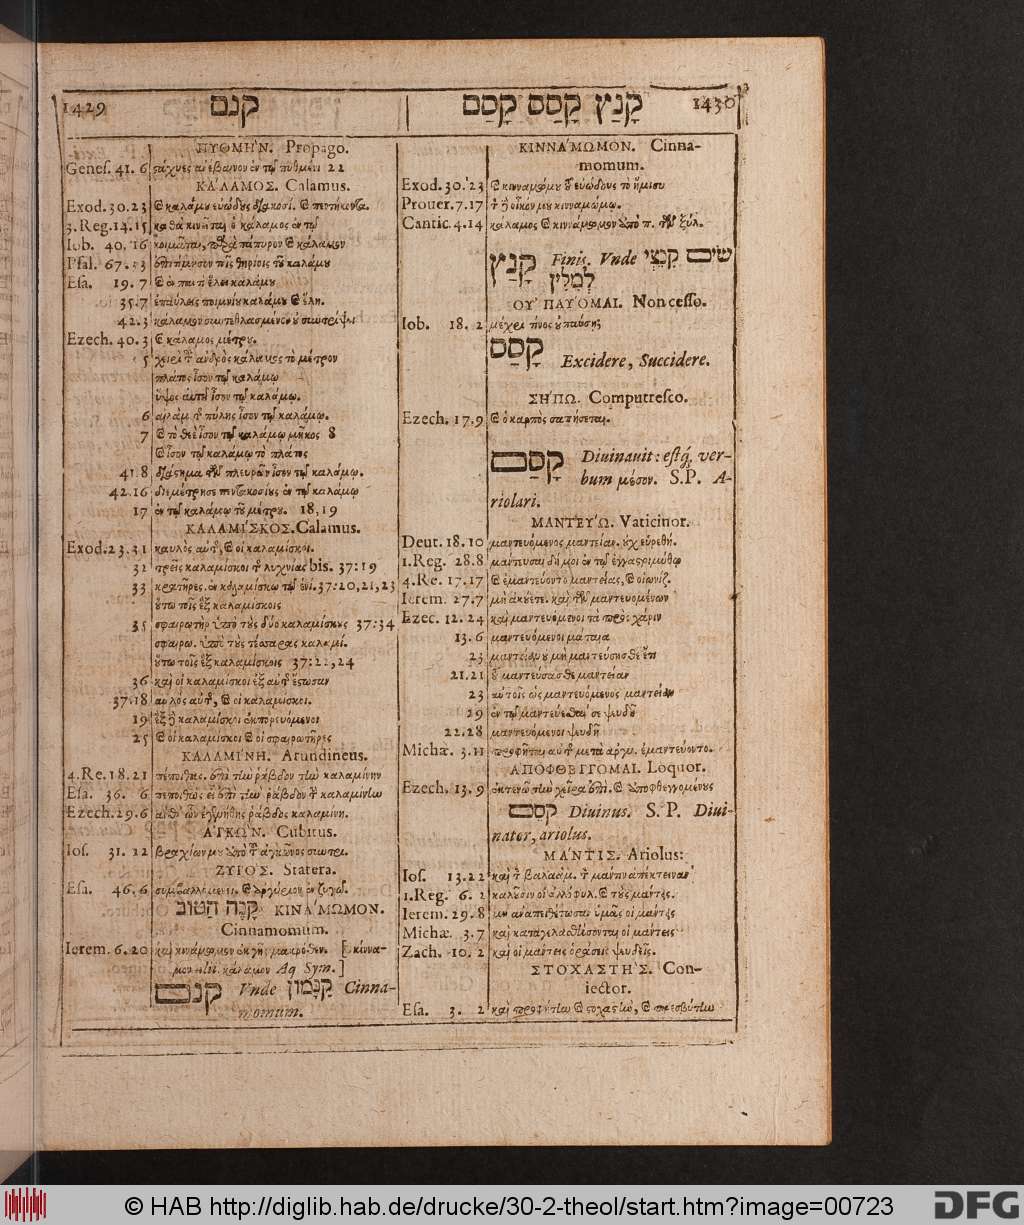 1429 קנם
ΠΥΘΜΗ'Ν. Propago.
Genes. 41. 6 στάχυες ἀνέβαινον ἐν τῷ πυθμένι 22
ΚΑ'ΛΑΜΟΣ. Calamus.
Exod. 30.23 καλάμου εὐώδους
3. Reg. 14.15 καθὰ κινεῖται ὁ κάλαμος ἐν τῷ
Iob. 40. 16 κοιμᾶται, παρὰ πάπυρον καὶ κάλαμον
Psal. 67. ἐπιτίμησον τοῖς θηρίοις τοῦ καλάμου
Esa. 19. 7 καὶ ἐν παντὶ ἕλει καλάμου
35.7 ἐπαύλεις ποιμνίου καλάμου καὶ ἕλη.
42.3 κάλαμον συντεθλασμένον οὐ συντρίψει
Ezech. 40. 3 καὶ κάλαμος μέτρου.
5 χειρὶ τοῦ ἀνδρὸς κάλαμος τὸ μέτρον
πλάτος ἴσον τῷ καλάμῳ
ὕψος αὐτοῦ ἴσον τῷ καλάμῳ.
6 αἰλὰμ τῆς πύλης ἴσον τῷ καλάμῳ.
7 καὶ τὸ θεὲ ἴσον τῷ καλάμῳ μῆκος 8
καὶ ἴσον τῷ καλάμῳ τὸ πλάτος
41.8 διάστημα τῶν πλευρῶν ἴσον τῷ καλάμῳ.
42.16 διεμέτρησε πεντακοσίους ἐν τῷ καλάμῳ
17 ἐν τῷ καλάμῳ τοῦ μέτρου. 18,19
ΚΑΛΑΜΙ'ΣΚΟΣ. Calamus.
Exod. 23.31 καυλὸς αὐτῆς, καὶ οἱ καλαμίσκοι.
32 τρεῖς καλαμίσκοι τῆς λυχνίας bis. 37:19
33 κρατῆρες. ἐν καλαμίσκῳ τῷ ἑνί. 37:20,21,23
οὕτω τοῖς ἓξ καλαμίσκοις
35 σφαιρωτὴρ ὑπὸ τοὺς δύο καλαμίσκους 37:34
σφαιρω. ὑπὸ τοὺς τέσσαρας καλαμί.
οὕτω τοῖς ἓξ καλαμίσκοις 37:22,24
36 καὶ οἱ καλαμίσκοι ἐξ αὐτῆς ἔστωσαν
37.18 αὐλὸς αὐτῆς, καὶ οἱ καλαμίσκοι.
19 ἓξ καλαμίσκοι ἐκπορευόμενοι
25 καὶ οἱ καλαμίσκοι καὶ οἱ σφαιρωτῆρες
ΚΑΛΑΜΙ'ΝΗ. Arundineus.
4. Re. 18.21 πέποιθας. ἐπὶ τὴν ῥάβδον τὴν καλαμίνην
Esa. 36. 6 πεποιθὼς εἶ ἐπὶ τὴν ῥάβδον τὴν καλαμίνην
Ezech. 29.6 ἐγενήθης ῥάβδος καλαμίνη.
ΑΓΚΩ'Ν. Cubitus.
Ios. 31. 12 βραχίων μου ἀπὸ τοῦ ἀγκῶνος συντρι.
ΖΥΓΟ'Σ. Statera.
Esa. 46. 6 συμβαλλόμενοι. καὶ ἀργύριον ἐν ζυγῷ.
קָנֶה הַטּוֹב ΚΙΝΑ'ΜΩΜΟΝ.
Cinnamomum.
Ierem. 6. 20 καὶ κινάμωμον ἐκ γῆς μακρόθεν. [κίννα-
μον κάλαμον Aq Sym.]
קנם Vnde קִנָּמוֹן Cinna-
momum.
קָנַץ קָסַס קָסַם 1430
ΚΙΝΝΑ'ΜΩΜΟΝ. Cinna-
momum.
Exod. 30. 23 καὶ κινναμώμου εὐώδους τὸ ἥμισυ
Prouer. 7.17 τὸν οἶκόν μου κινναμώμῳ.
Cantic. 4.14 κάλαμος καὶ κιννάμωμον
קָנַץ Finis. Vnde שִׂים קִנְצֵי
לְמִלִּין
ΟΥ' ΠΑΥ'ΟΜΑΙ. Non cesso.
Iob. 18. 2 μέχρι τίνος οὐ παύσῃ
קָסַס Excidere, Succidere.
ΣΗ'ΠΩ. Computresco.
Ezech. 17.9 καὶ ὁ καρπὸς σαπήσεται.
קָסַם Diuinauit: estq́. ver-
bum μέσον. S.P. A-
riolari.
ΜΑΝΤΕΥ'Ω. Vaticinor.
Deut. 18. 10 μαντευόμενος μαντείαν. οὐχ εὑρεθή.
1. Reg. 28.8 μάντευσαι δή μοι ἐν τῷ ἐγγαστριμύθῳ
4. Re. 17.17 καὶ ἐμαντεύοντο μαντείας, καὶ οἰωνίζ.
Ierem. 27.7 μὴ ἀκούετε. καὶ τῶν μαντευομένων
Ezec. 12. 24 καὶ μαντευόμενοι τὰ πρὸς χάριν
13. 6 μαντευόμενοι μάταια
23 μαντείαν οὐ μὴ μαντεύσησθε ἔτι
21.21 τοῦ μαντεύσασθαι μαντείαν
23 αὐτοῖς ὡς μαντευόμενος μαντείαν
29 ἐν τῷ μαντεύεσθαί σε ψευδῆ
22.28 μαντευόμενοι ψευδῆ
Michæ. 3. 11 προφῆται αὐτῆς μετὰ ἀργυ. ἐμαντεύοντο.
ΑΠΟΦΘΕΓΓΟΜΑΙ. Loquor.
Ezech. 13. 9 ἐκτενῶ τὴν χεῖρα ἐπί. καὶ ἀποφθεγγομένους
קֹסֵם Diuinus. S. P. Diui-
nator, ariolus.
ΜΑ'ΝΤΙΣ. Ariolus:
Ios. 13.22 καὶ τὸν βαλαὰμ. τὸν μάντιν ἀπέκτειναν
1. Reg. 6. 2 καλοῦσιν οἱ ἀλλόφυλ. καὶ τοὺς μάντεις.
Ierem. 29. 8 μὴ ἀναπειθέτωσαν ὑμᾶς οἱ μάντεις
Michæ. 3. 7 καὶ καταγελασθήσονται οἱ μάντεις
Zach. 10. 2 καὶ οἱ μάντεις ὁράσεις ψευδεῖς.
ΣΤΟΧΑΣΤΗ'Σ. Con-
iector.
Esa. 3. 2 καὶ προφήτην καὶ στοχαστὴν, καὶ πρεσβύτην
© HAB http://diglib.hab.de/drucke/30-2-theol/start.htm?image=00723
DFG